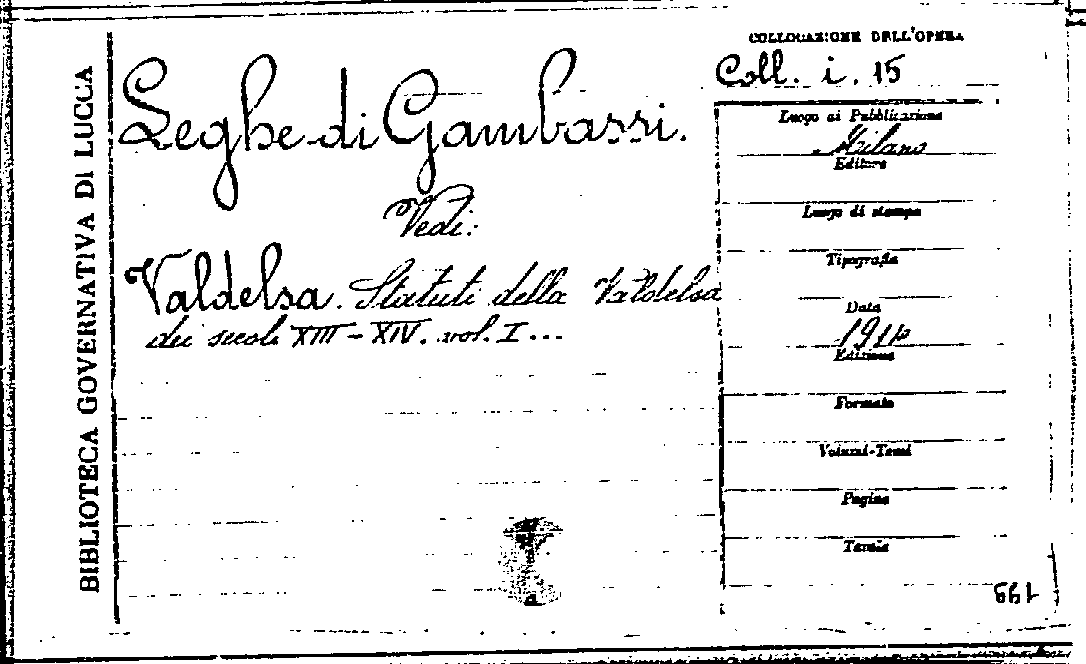 BIBLIOTECA GOVERNATIVA DI LUCCA
Leghe di Gambassi.
Vedi:
Valdelsa. Statuti della Valdelsa
dei secoli XIII - XIV. vol. I ...
COLLOCAZIONE DELL'OPERA
Coll. i. 15
Luogo di Pubblicazione
Milano
Editore
Luogo di stampa
Tipografia
Data
1914
Edizione
Formato
Volumi-Tomi
Pagine
Tavole
199